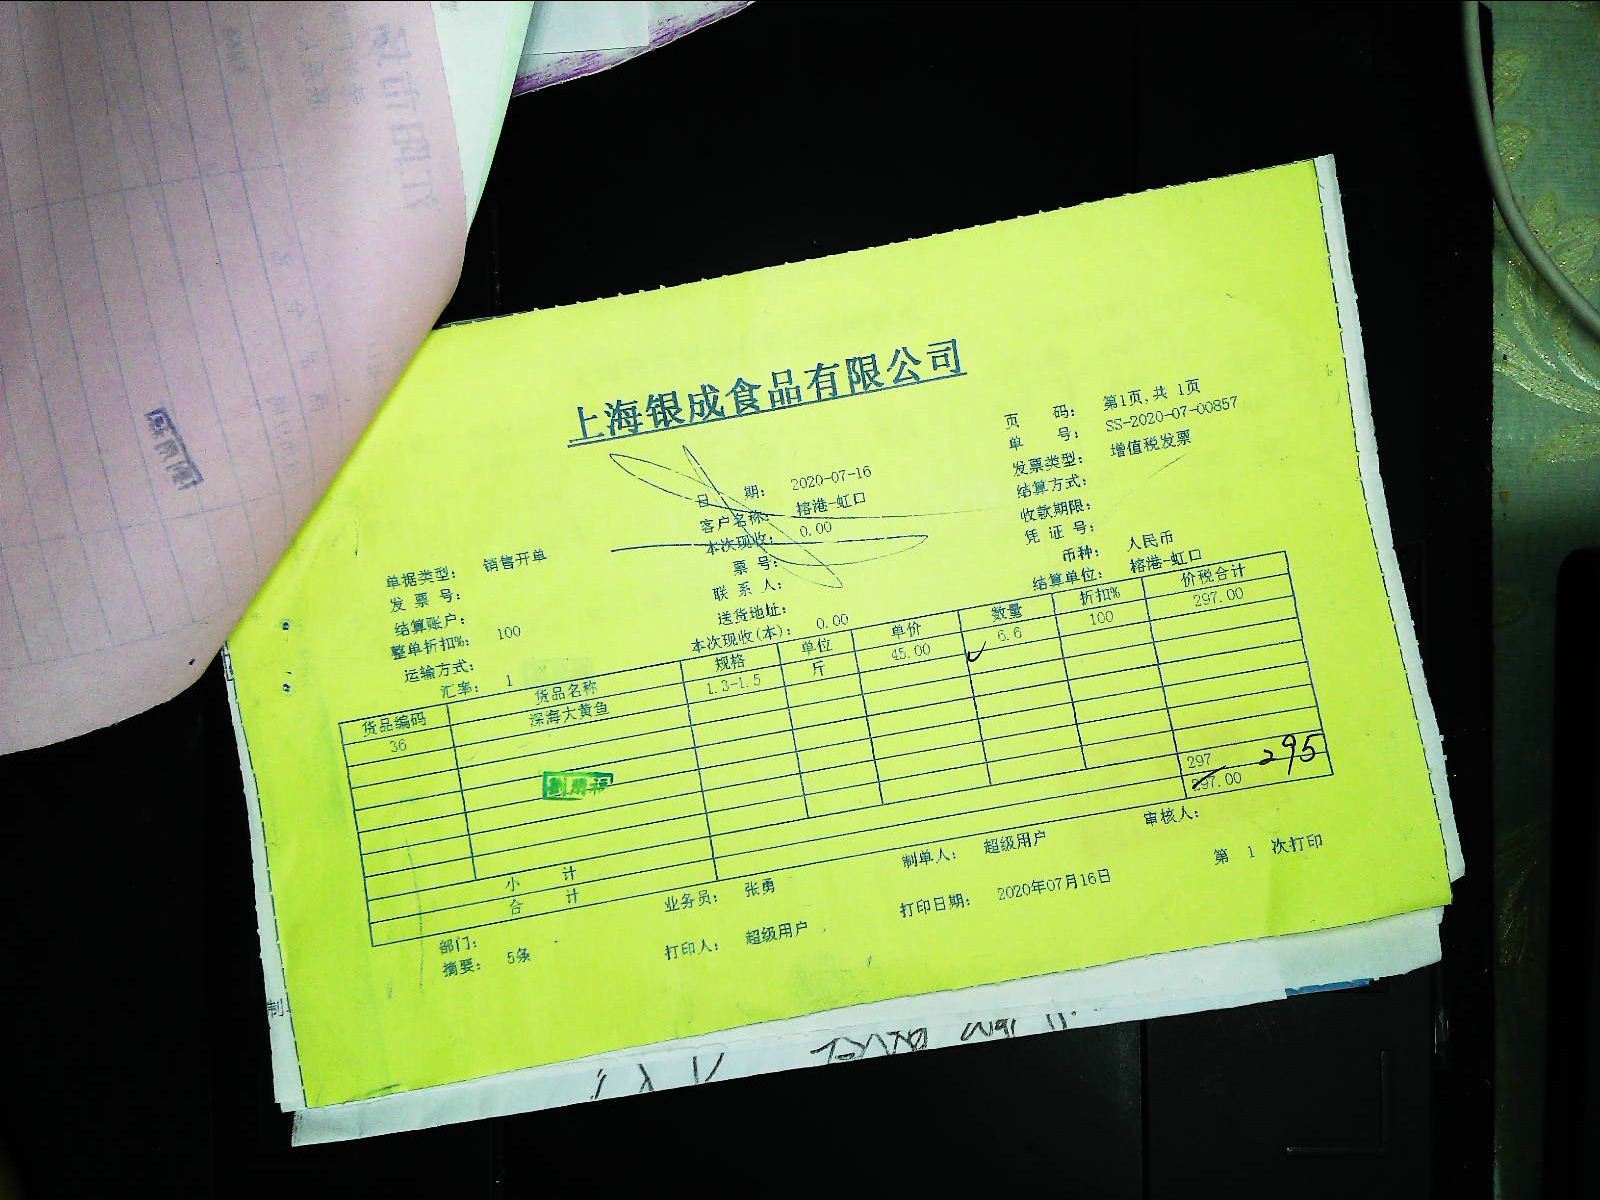 上海银成食品有限公司
页 码： 第1页,共 1页
单 号： SS-2020-07-00857
日 期： 2020-07-16
发票类型： 增值税发票
客户名称： 榕港-虹口
结算方式：
本次现收： 0.00
收款期限：
单据类型： 销售开单
票 号：
凭 证 号：
发 票 号：
联 系 人：
币种： 人民币
结算账户：
送货地址：
结算单位： 榕港-虹口
整单折扣%： 100
本次现收(本)： 0.00
运输方式：
汇率： 1
货品编码 货品名称 规格 单位 单价 数量 折扣% 价税合计
36 深海大黄鱼 1.3-1.5 斤 45.00 6.6 100 297.00
小 计 297 295
合 计 297.00
部门： 业务员： 张勇 制单人： 超级用户 审核人：
摘要： 5条 打印人： 超级用户 打印日期： 2020年07月16日 第 1 次打印